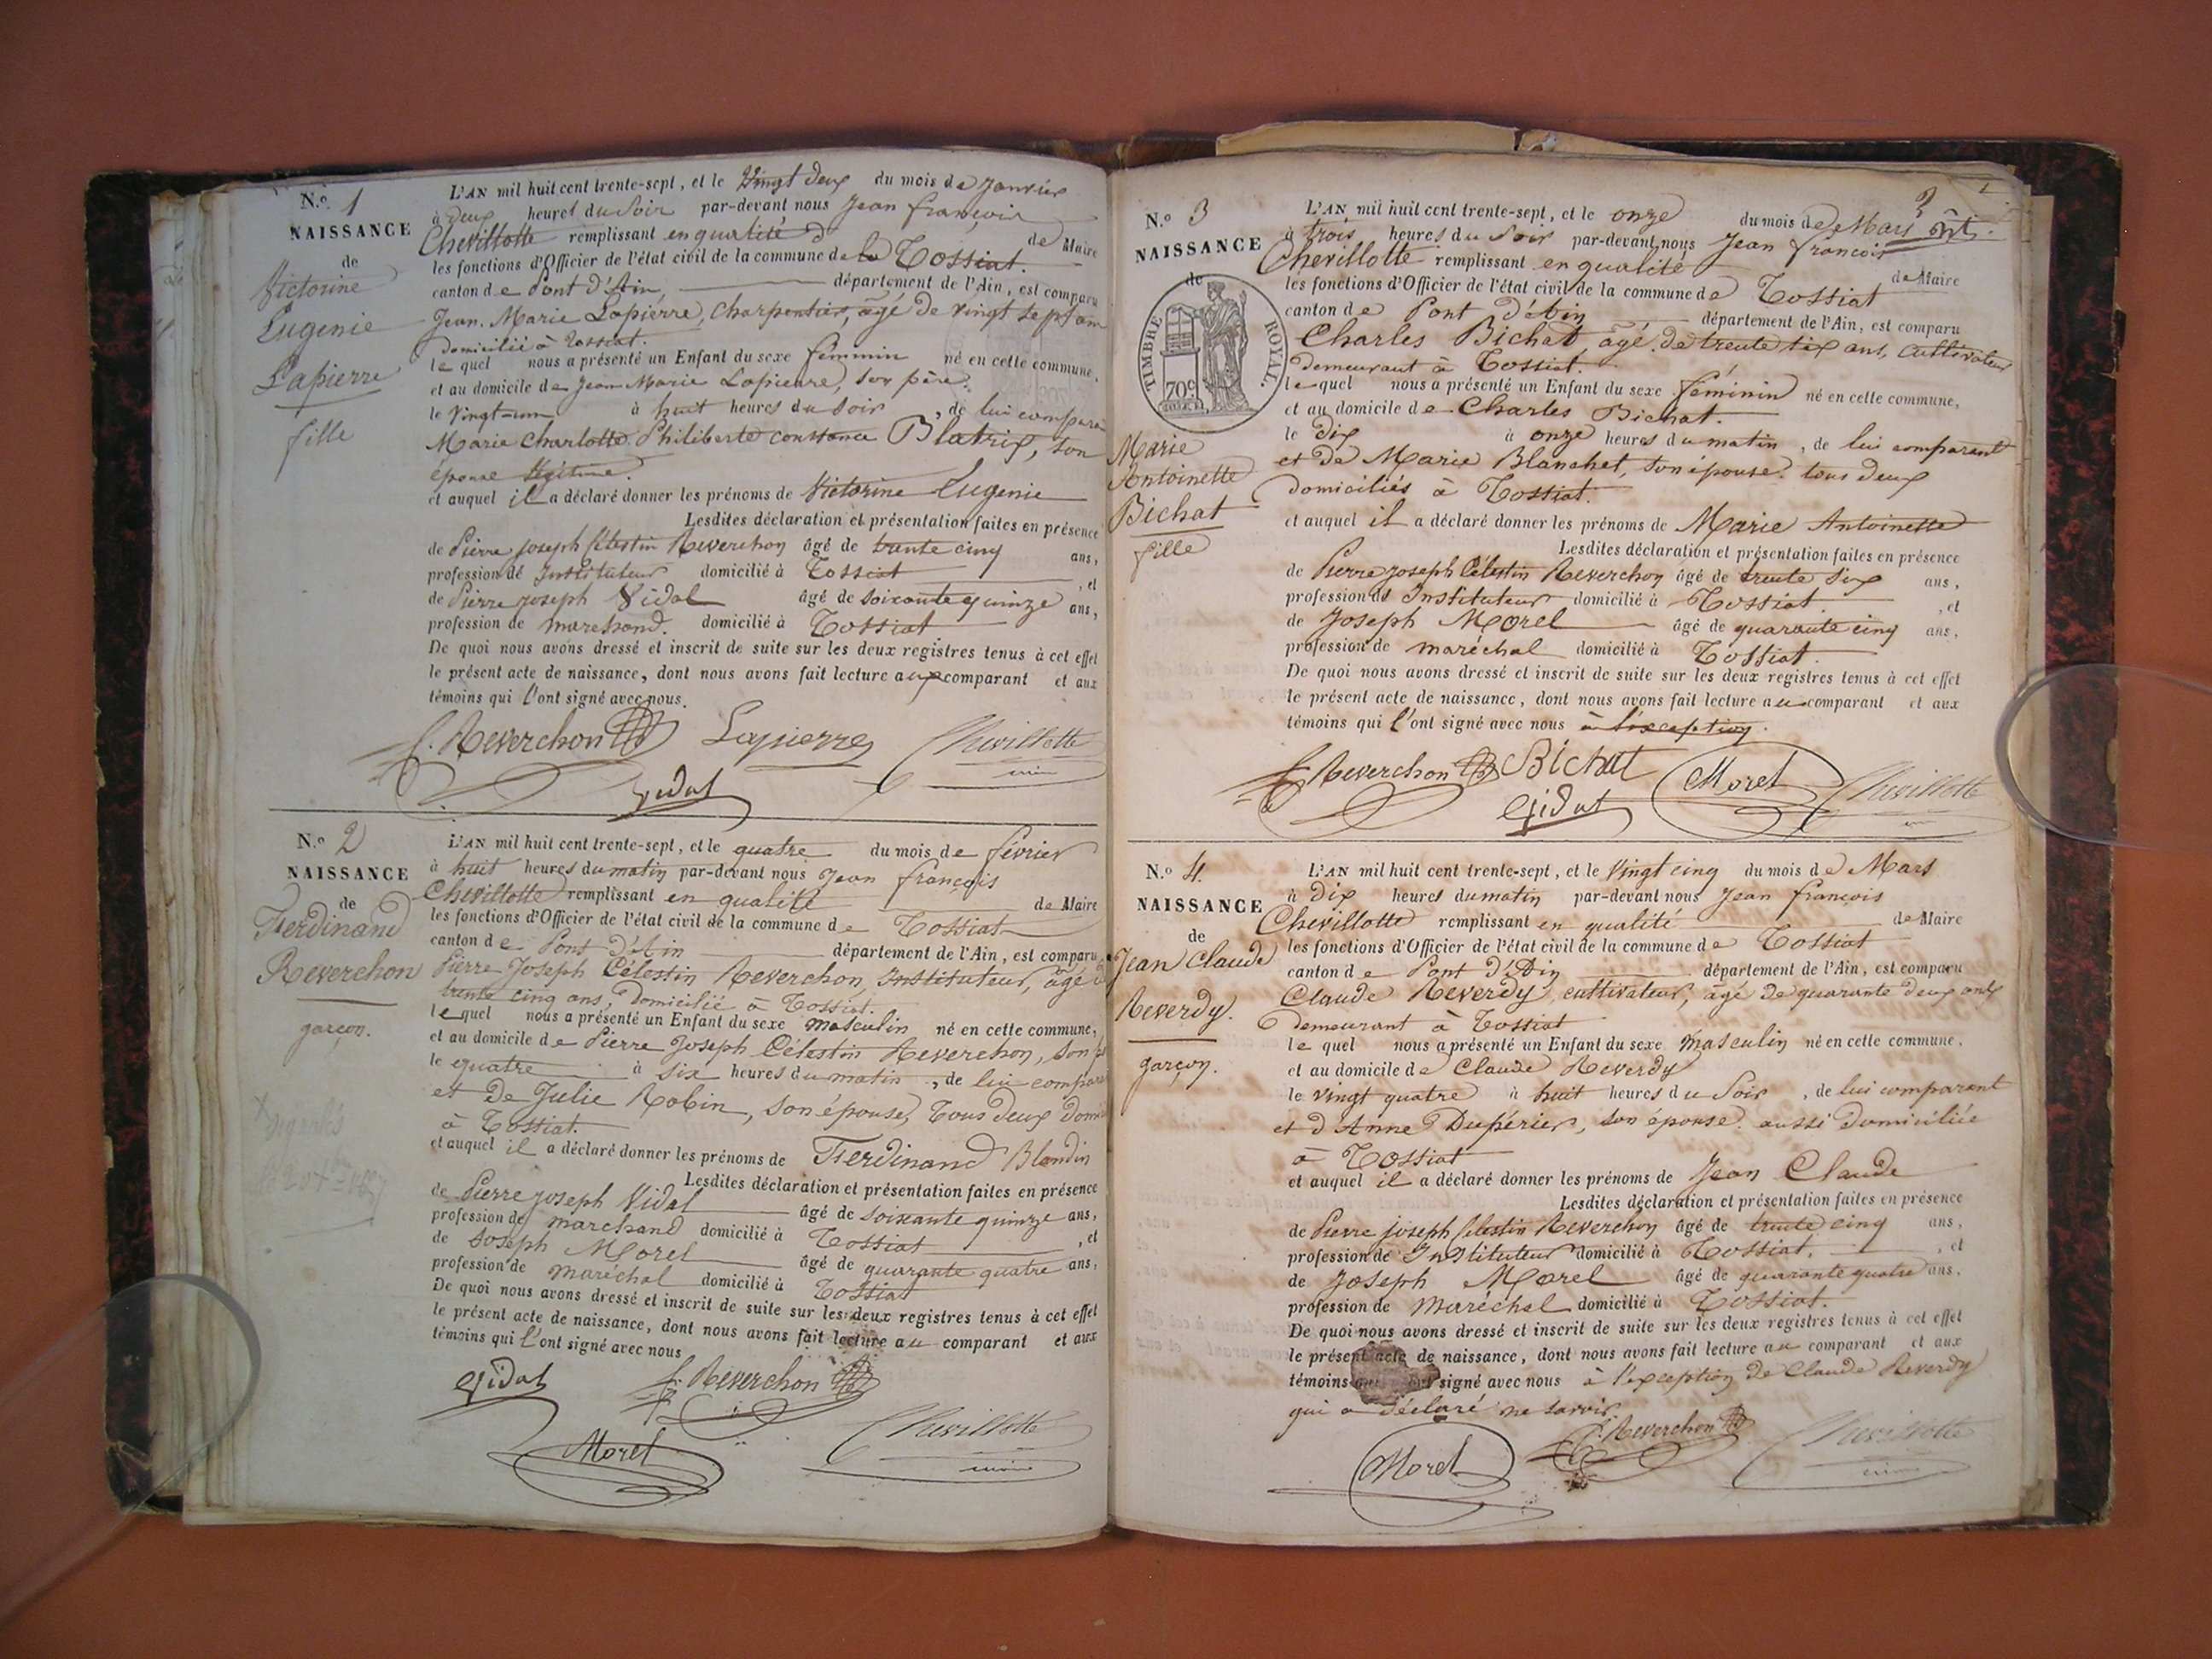 N.o 1
NAISSANCE
de
Victorine
Eugenie
Lapierre
fille
L'AN mil huit cent trente-sept, et le Vingt deux du mois de Janvier
à deux heures du Soir par-devant nous Jean françois
Chevillotte remplissant en qualité de Maire
les fonctions d'Officier de l'état civil de la commune de Tossiat.
canton de Pont d'Ain, département de l'Ain, est comparu
Jean Marie Lapierre, charpentier, âgé de vingt sept ans
domicilié à Tossiat.
lequel nous a présenté un Enfant du sexe féminin né en cette commune,
et au domicile de Jean Marie Lapierre, son père.
le Vingt-un à huit heures du Soir, de lui compara
Marie Charlotte Philiberte constance Blatrix, son
épouse légitime.
et auquel il a déclaré donner les prénoms de Victorine Eugenie
Lesdites déclaration et présentation faites en présence
de Pierre joseph Célestin Reverchon âgé de trente cinq ans,
profession de Instituteur domicilié à Tossiat, et
de Pierre joseph Vidal âgé de soixante quinze ans,
profession de marchand. domicilié à Tossiat
De quoi nous avons dressé et inscrit de suite sur les deux registres tenus à cet effet
le présent acte de naissance, dont nous avons fait lecture aux comparant et aux
témoins qui l'ont signé avec nous.
Reverchon Lapierre Chevillotte
Vidal
N.o 2
NAISSANCE
de
Ferdinand
Reverchon
garçon.
L'AN mil huit cent trente-sept, et le quatre du mois de février
à huit heures du matin par-devant nous Jean françois
Chevillotte remplissant en qualité de Maire
les fonctions d'Officier de l'état civil de la commune de Tossiat
canton de Pont d'Ain département de l'Ain, est comparu
Pierre Joseph Célestin Reverchon, Instituteur, âgé
trente cinq ans, domicilié à Tossiat.
lequel nous a présenté un Enfant du sexe masculin né en cette commune,
et au domicile de Pierre Joseph Célestin Reverchon, son
le quatre à six heures du matin, de lui compara
et de Julie Robin, son épouse, tous deux domi
à Tossiat.
et auquel il a déclaré donner les prénoms de Ferdinand Blondin
Lesdites déclaration et présentation faites en présence
de Pierre joseph Vidal âgé de soixante quinze ans,
profession de marchand domicilié à Tossiat, et
de Joseph Morel âgé de quarante quatre ans,
profession de maréchal domicilié à Tossiat
De quoi nous avons dressé et inscrit de suite sur les deux registres tenus à cet effet
le présent acte de naissance, dont nous avons fait lecture au comparant et aux
témoins qui l'ont signé avec nous
Vidal Reverchon
Morel Chevillotte
2
N.o 3
NAISSANCE
de
TIMBRE ROYAL.
70c
Marie
Antoinette
Bichat
fille
L'AN mil huit cent trente-sept, et le onze du mois de Mars
à trois heures du Soir par-devant nous Jean francois
Chevillotte remplissant en qualité de Maire
les fonctions d'Officier de l'état civil de la commune de Tossiat
canton de Pont d'Ain département de l'Ain, est comparu
Charles Bichat âgé de trente six ans, cultivateur
demeurant à Tossiat.
lequel nous a présenté un Enfant du sexe féminin né en cette commune,
et au domicile de Charles Bichat.
le dix à onze heures du matin, de lui comparant
et de Marie Blanchet, son épouse. tous deux
domiciliés à Tossiat.
et auquel il a déclaré donner les prénoms de Marie Antoinette
Lesdites déclaration et présentation faites en présence
de Pierre joseph Célestin Reverchon âgé de trente six ans,
profession de Instituteur domicilié à Tossiat., et
de Joseph Morel âgé de quarante cinq ans,
profession de maréchal domicilié à Tossiat.
De quoi nous avons dressé et inscrit de suite sur les deux registres tenus à cet effet
le présent acte de naissance, dont nous avons fait lecture au comparant et aux
témoins qui l'ont signé avec nous à l'exception.
Reverchon Bichat Morel Chevillotte
Vidal
N.o 4.
NAISSANCE
de
Jean Claude
Reverdy.
garçon.
L'AN mil huit cent trente-sept, et le Vingt cinq du mois de Mars
à Dix heures du matin par-devant nous Jean francois
Chevillotte remplissant en qualité de Maire
les fonctions d'Officier de l'état civil de la commune de Tossiat
canton de Pont d'Ain département de l'Ain, est comparu
Claude Reverdy, cultivateur, âgé de quarante deux ans
demeurant à Tossiat
lequel nous a présenté un Enfant du sexe masculin né en cette commune,
et au domicile de Claude Reverdy
le vingt quatre à huit heures du Soir, de lui comparant
et d'Anne Dupérier, son épouse. aussi domiciliée
à Tossiat
et auquel il a déclaré donner les prénoms de Jean Claude
Lesdites déclaration et présentation faites en présence
de Pierre joseph Célestin Reverchon âgé de trente cinq ans,
profession de Instituteur domicilié à Tossiat., et
de Joseph Morel âgé de quarante quatre ans,
profession de maréchal domicilié à Tossiat.
De quoi nous avons dressé et inscrit de suite sur les deux registres tenus à cet effet
le présent acte de naissance, dont nous avons fait lecture au comparant et aux
témoins signé avec nous à l'exception de Claude Reverdy
qui a déclaré ne savoir.
Reverchon
Morel Chevillotte